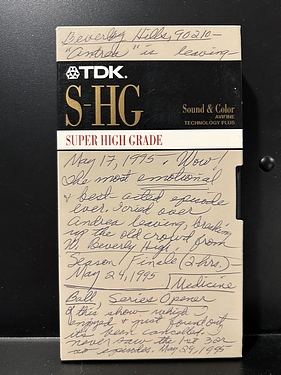 Beverly Hills, 90210-
"Andrea" is leaving
TDK.
S-HG
Sound & Color
AVIFINE
TECHNOLOGY PLUS
SUPER HIGH GRADE
May 17, 1995. Wow!
The most emotional
& best acted episode
ever. I cried over
Andrea leaving, breaking
up the old crowd from
W. Beverly High.
Season Finale (2 hrs.)
May 24, 1995
Medicine
Ball, Series Opener
of this show which I
enjoyed & just found out
it's been cancelled. I
never saw the 1st 3 or
so episodes. May 29, 1995